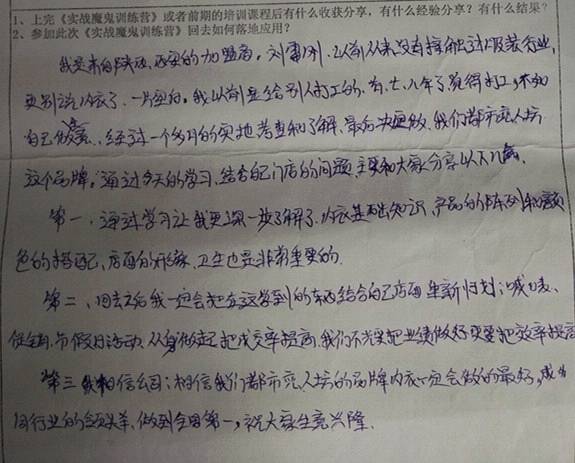 1、上完《实战魔鬼训练营》或者前期的培训课程后有什么收获分享，有什么经验分享？有什么结果？
2、参加此次《实战魔鬼训练营》回去如何落地应用？
我是来自陕西、西安的加盟商，刘雷刚，以前从来没有接触过服装行业，
更别说内衣了，一片空白，我以前是给别人打工的，有七、八年了觉得打工，不如
自己做老板，经过一个多月的实地考查和了解，最后决定做，我们都市恋人坊
这个品牌。通过今天的学习，结合自己门店的问题，主要和大家分享以下几点，
第一，通过学习让我更深一步了解了，内衣基础知识，产品的陈列和颜
色的搭配，店面的形象，卫生也是非常重要的
第二、回去之后我一定会把在这学到的东西结合自己店面重新归划：喊麦、
促销、节假日活动，从身做起把成交率提高，我们不光要把业绩做好更要把效率提高
第三、我相信公司：相信我们都市恋人坊的品牌内衣一定会做的最好，成为
同行业的领头羊，做到全国第一，祝大家生意兴隆，